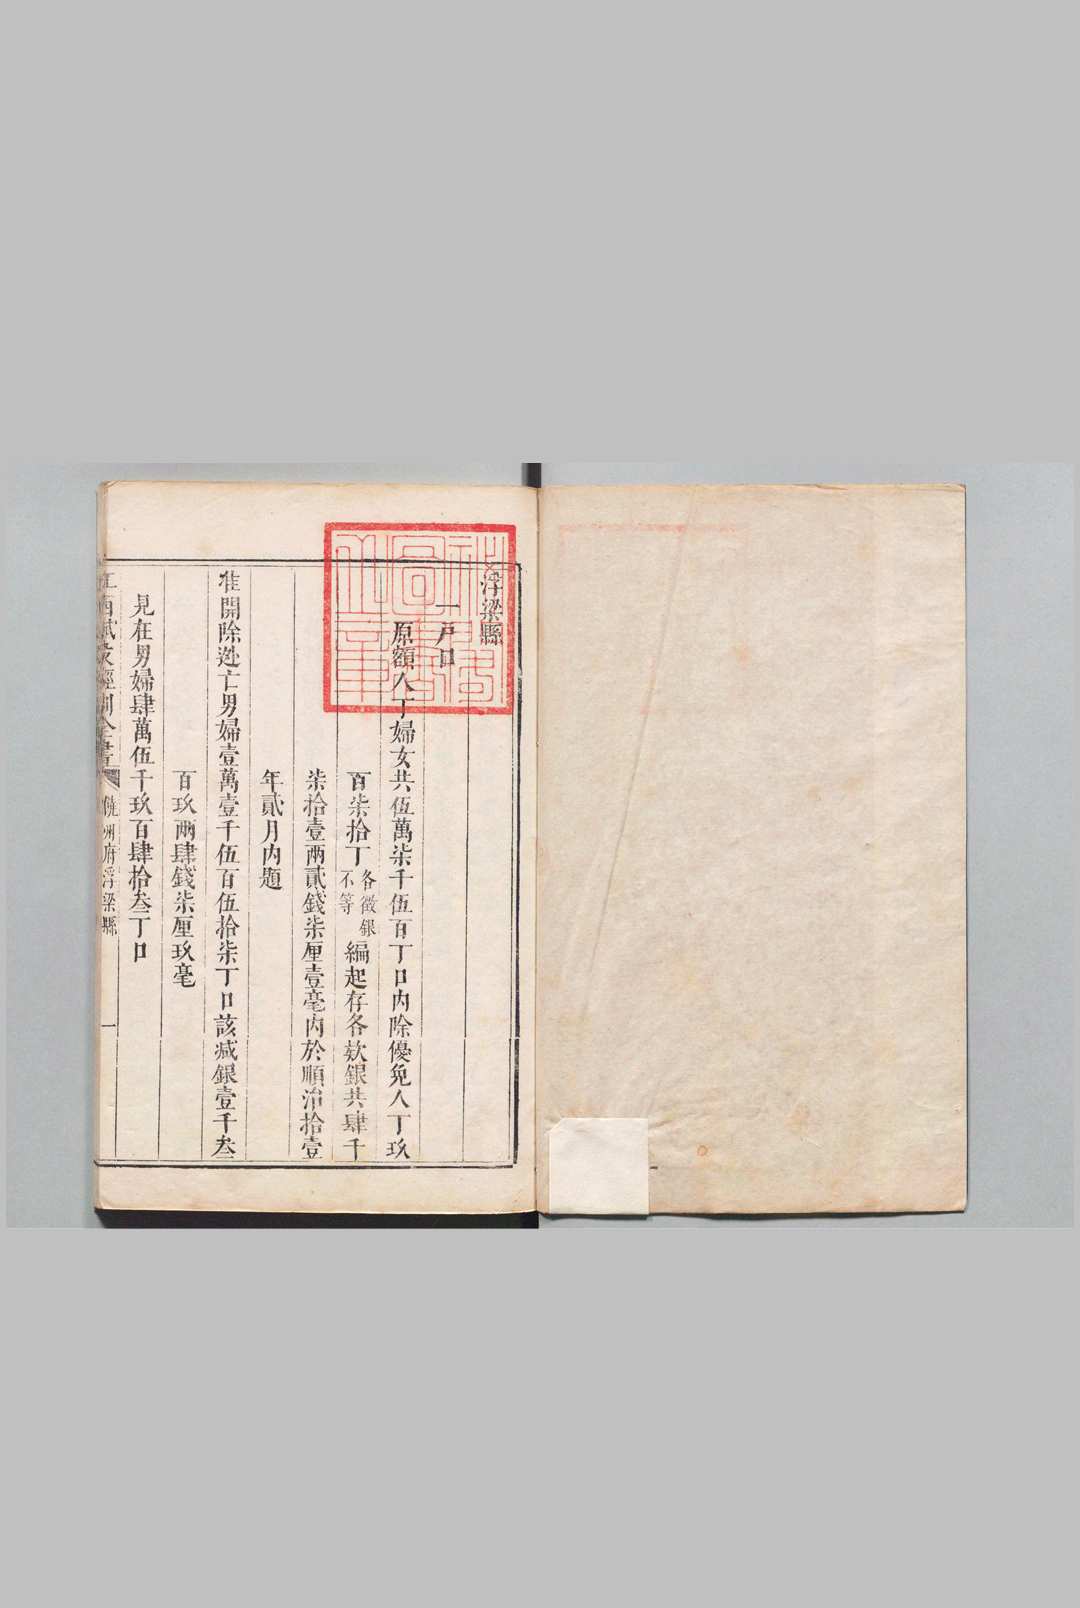 浮梁縣
一戶口
原額人丁婦女共伍萬柒千伍百丁口內除優免人丁玖
百柒拾丁各徵銀不等編起存各款銀共肆千
柒拾壹兩貳錢柒厘壹毫內於順治拾壹
年貳月內題
准開除逃亡男婦壹萬壹千伍百伍拾柒丁口該減銀壹千叁
百玖兩肆錢柒厘玖毫
見在男婦肆萬伍千玖百肆拾叁丁口
江西賦役經制全書
饒州府浮梁縣
一